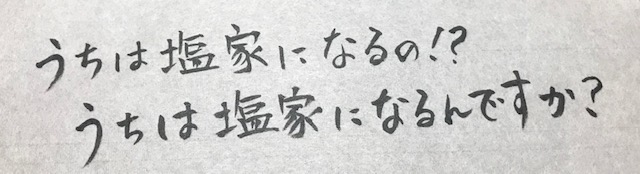 うちは塩家になるの!?
うちは塩家になるんですか?